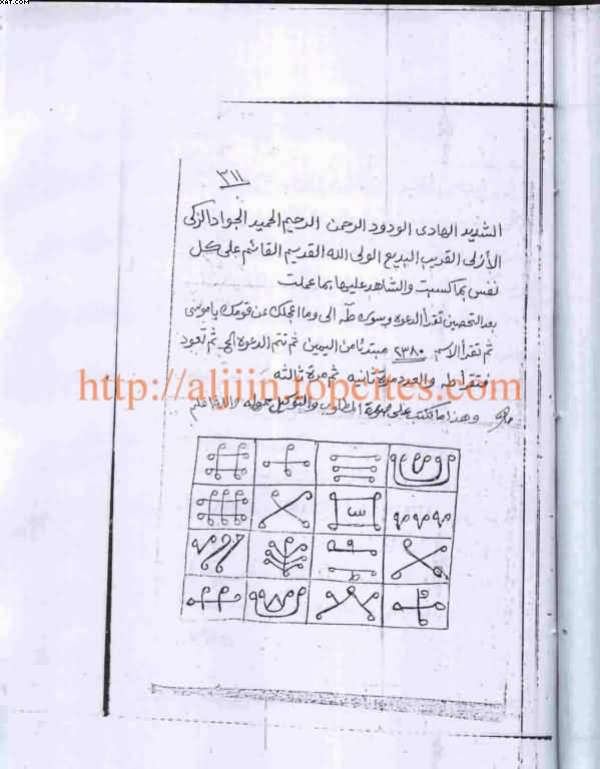 XAT.COM
٣١١
الشديد الهادى الودود الرحمن الرحيم الحميد الجواد الزكى
الأزلى القريب البديع الولى الله القديم القائم على كل
نفس بما كسبت والشاهد عليها بما عملت
بعد التحصين تقرأ الدعوة وسورة طه الى وما اعجلك عن قومك ياموسى
ثم تقرأ الاسم ٢٣٨٠ مبتدئا من اليمين ثم تتم الدعوة الخ ثم تعود
فتقرأ طه والعدد مرة ثانيه ثم مرة ثالثه
http://alijin.topcites.com
وهذا ما تكتب على صورة المطلوب والتوكيل حوله والله اعلم
س